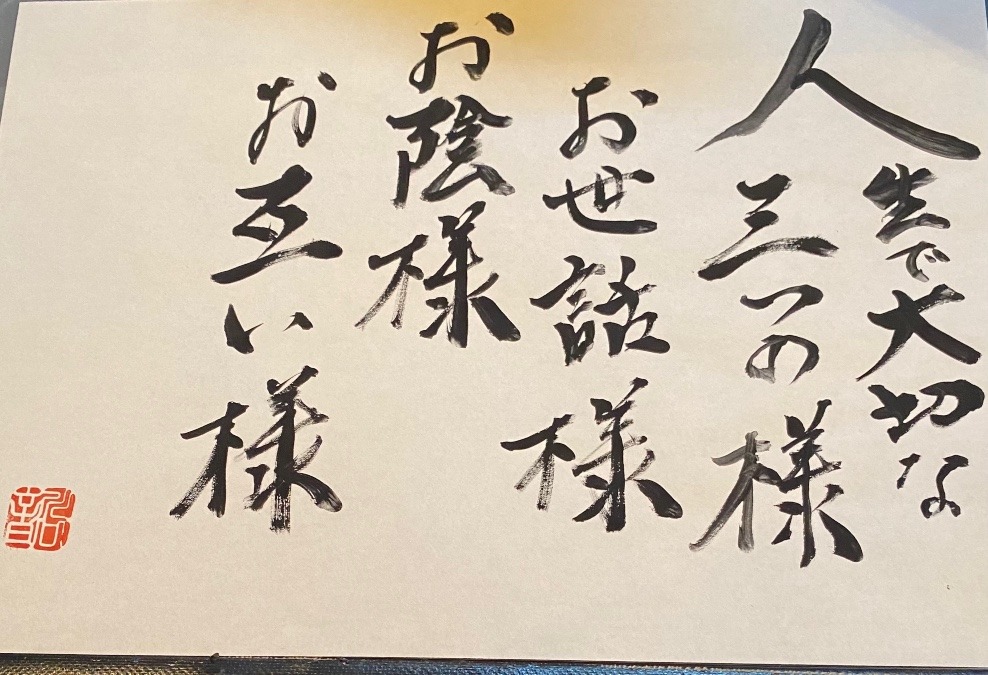 人生で大切な
三つの様
お世話様
お陰様
お互い様